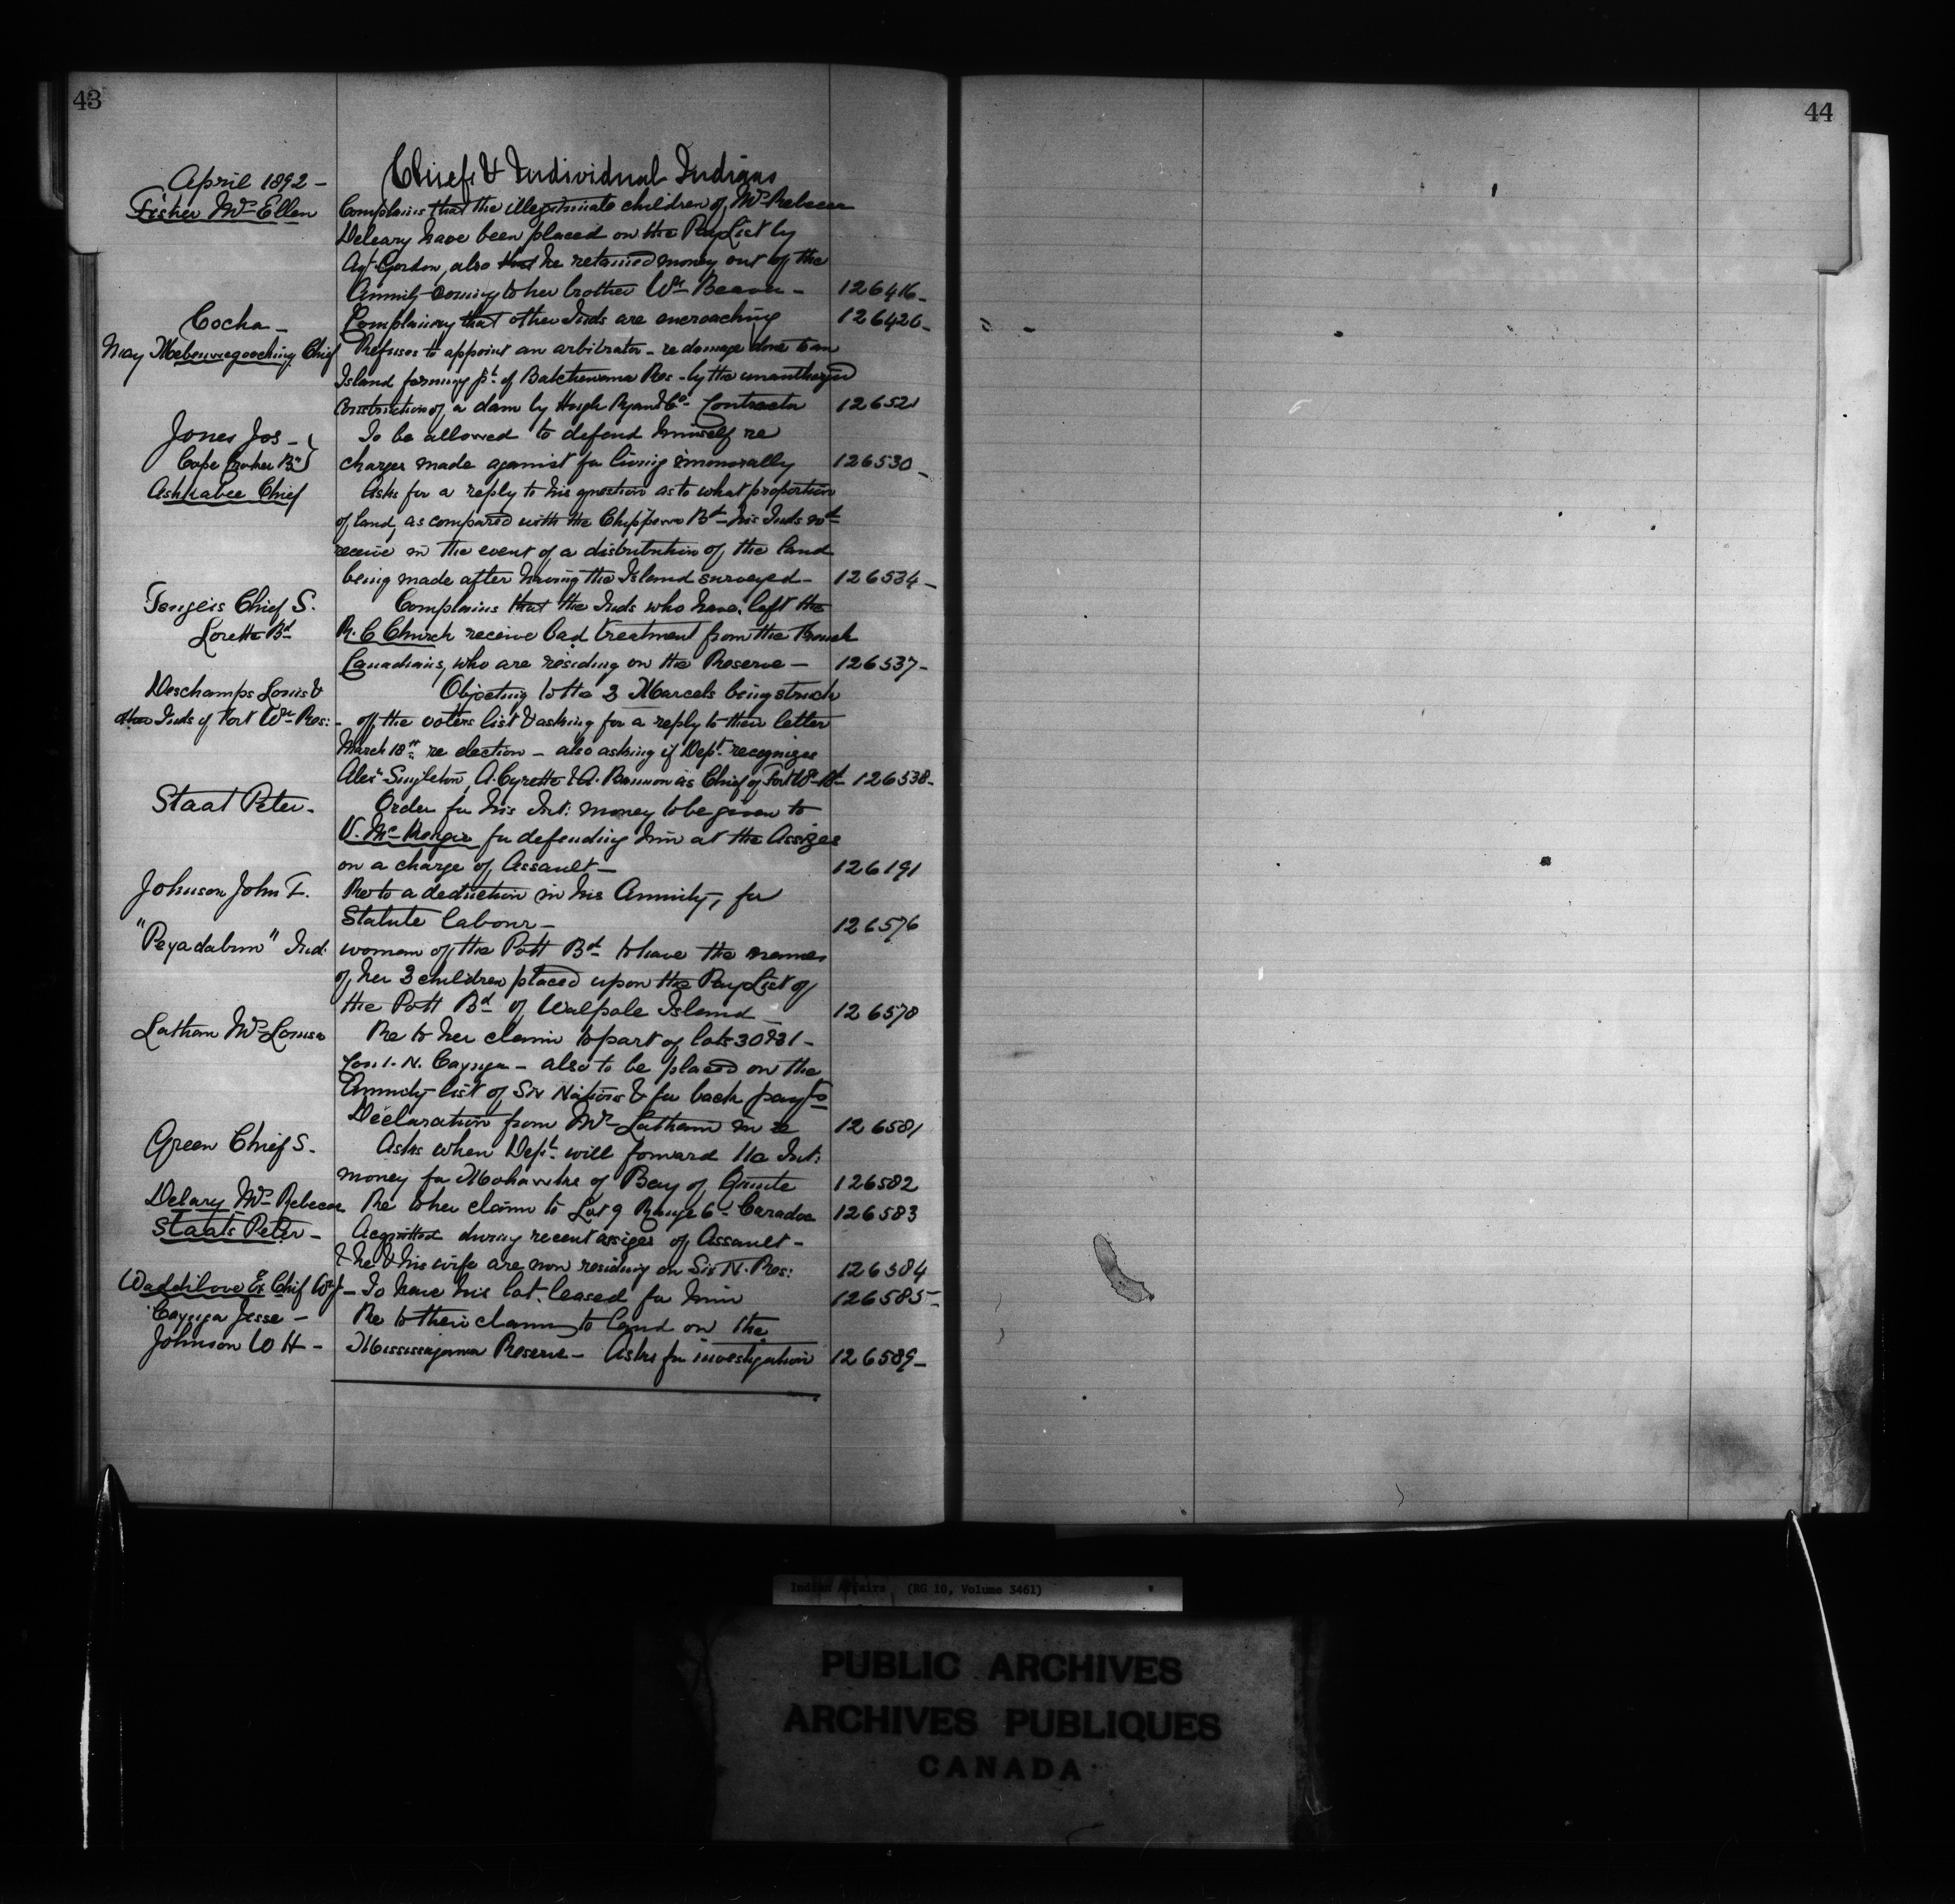 43
44
Chiefs & Individual Indians
April 1892 -
Fisher Mrs Ellen Complains that the illegitimate children of Mrs Rebecca
Deleary have been placed on the Pay List by
Agt Gordon, also that he retained money out of the
Annuity coming to her brother Wm Beaver - 126416 -
Cocha - Complaining that other Inds are encroaching 126426 -
May Chief Refuses to appoint an arbitrator - re damage done to an
Island forming pt of Batchewana Res - by the unauthorized
construction of a dam by Hugh Ryan & Co - Contractor 126521
Jones Jos - To be allowed to defend himself re
Cape Croker Bd charges made against for living immorally 126530 -
Ashkabee Chief Asks for a reply to his question as to what proportion
of land, as compared with the Chippewa Bd - his Inds wd
receive in the event of a distribution of the land
being made after having the Island surveyed - 126534 -
Chief S. Complains that the Inds who have left the
Lorette Bd R. C Church receive bad treatment from the French
Canadians, who are residing on the Reserve - 126537 -
Deschamps Louis & Objecting to the 3 Marcels being struck
other Inds of Fort Wm Res: - off the voters list & asking for a reply to their letter
March 18th re election - also asking if Dept recognizes
Alexr Singleton, A. Cyrette & A. Bannon as Chief of Fort Wm Bd - 126538 -
Staat Peter - Order for his Int: money to be given to
V. McKenzie for defending him at the Assizes
on a charge of Assault - 126191
Johnson John T. Re to a deduction in his Annuity, for
Statute labour - 126576
"Peyadabun" Ind: woman of the Pott Bd - to have the names
of her 3 children placed upon the Pay List of
the Pott Bd of Walpole Island - 126578
Latham Mrs Louisa Re to her claim to part of lots 30 & 31 -
Con 1 - N. Cayuga - also to be placed on the
Annuity list of Six Nations & for back payts
Declaration from Mrs Latham in re 126581
Green Chief S. Asks when Dept will forward Int:
money for Mohawks of Bay of Quinte 126582
Delary Mrs Rebecca Re to her claim to Lot 9 Range 6 - Caradoc 126583
Staats Peter - Acquitted during recent assizes of Assault -
& he & his wife are now residing on Six N. Res: 126584
Waddilove Ex Chief Wm J - To have his lot leased for him 126585 -
Cayuga Jesse - Re to their claim to land on the
Johnson W H - Mississagawa Reserve - Asks for investigation 126589 -
Indian Affairs (RG 10, Volume 3461)
PUBLIC ARCHIVES
ARCHIVES PUBLIQUES
CANADA